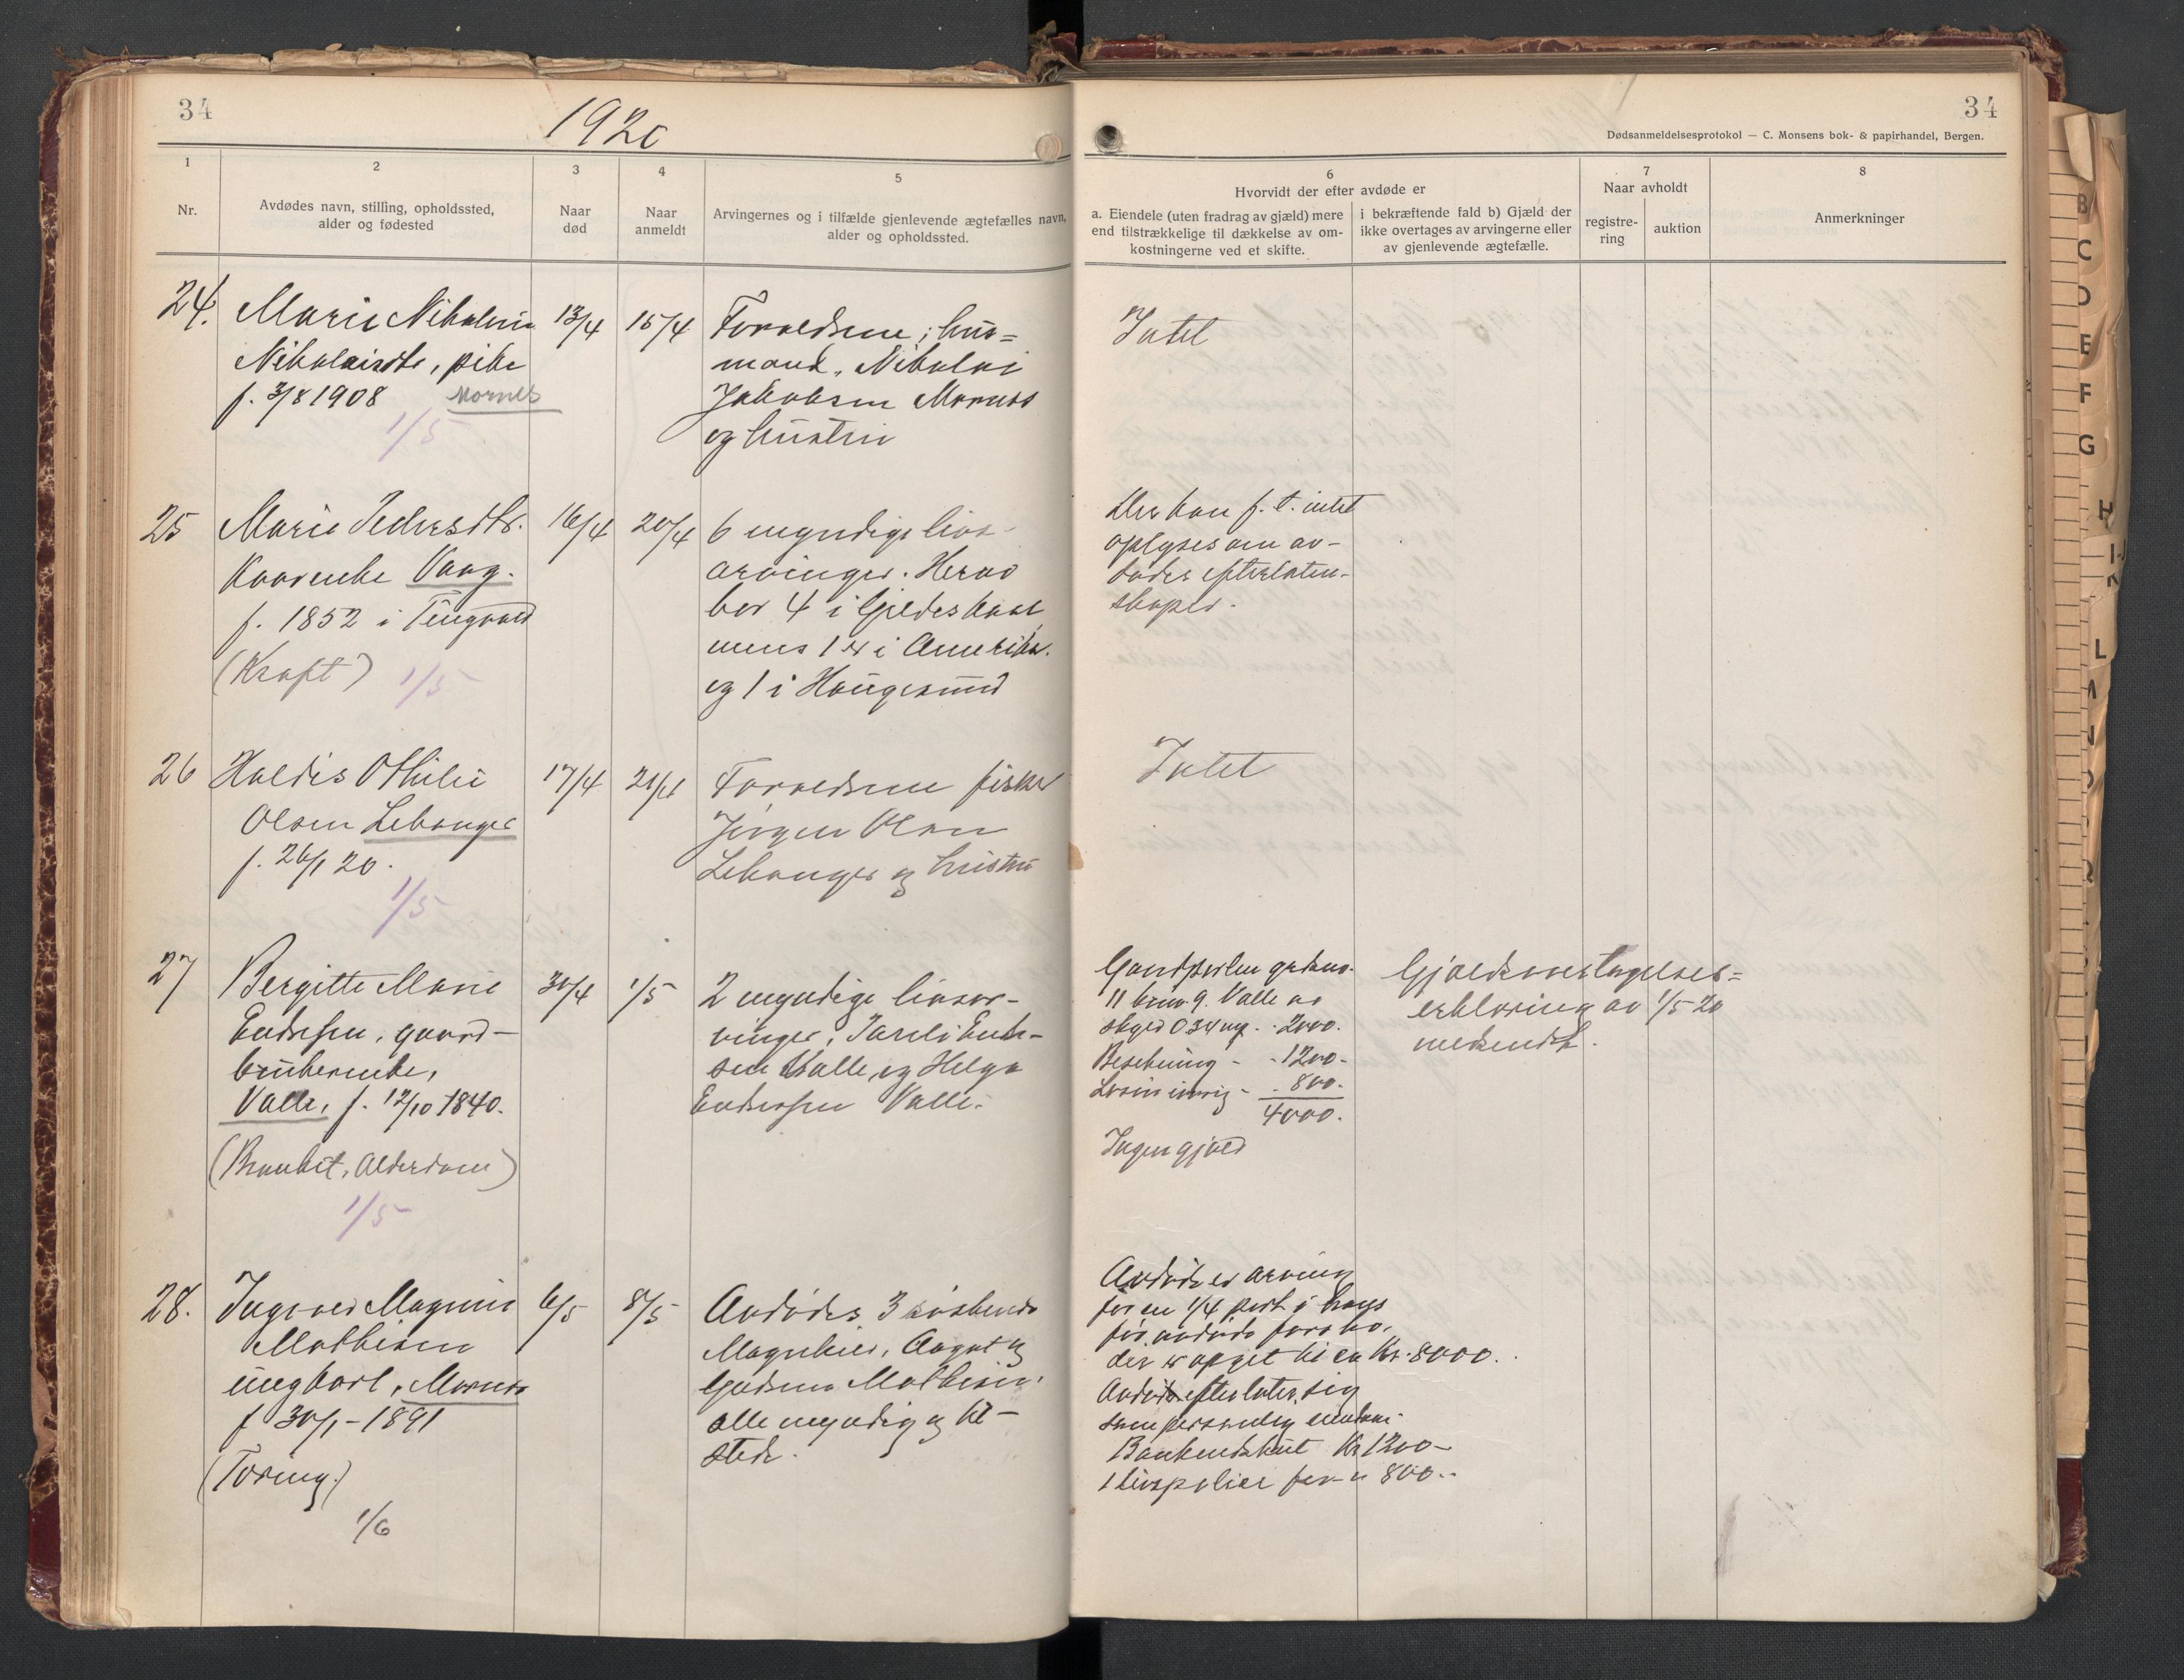 34
1920
1
2
3
4
5
Nr.
Avdødes navn, stilling, opholdssted,
alder og fødested
Naar
død
Naar
anmeldt
Arvingernes og i tilfælde gjenlevende ægtefælles navn,
alder og opholdssted.
24.
Marie Nikoline
Nikolaisdtr, pike
f. 3/8 1908 Mornes
1/5
13/4
15/4
Forældrene, hus=
mand, Nikolai
Jakobsen Mornes
og hustru
25
Marie Pedersdtr.
Kaarenke Vaag.
f. 1852 i Tingvold
(Kræft)
1/5
16/4
20/4
6 myndige livs-
arvinger. Herav
bor 4 i Gildeskaal
mens 1 er i Amerika.
og 1 i Haugesund
26
Haldis Othilie
Olsen Lekanger
f. 26/1 20.
1/5
17/4
21/4
Forældrene fisker
Jørgen Olsen
Lekanger og hustru
27
Bergitte Marie
Endresen, gaard-
brukerenke,
Valle, f. 12/10 1840.
(Bronkit, Alderdom)
1/5
30/4
1/5
2 myndige livsar-
vinger, Endre-
sen Valle og Helga
Endresen Valle.
28.
Ingvar Magnus
Mathisen
ungkarl, Mornes
f 30/1-1891
(Tæring)
1/6
6/5
8/5
Avdødes 3 søskende
August og
Mathisen,
alle myndig og til-
stede.
34
Dødsanmeldelsesprotokol — C. Monsens bok- & papirhandel, Bergen.
6
Hvorvidt der efter avdøde er
a. Eiendele (uten fradrag av gjæld) mere
end tilstrækkelige til dækkelse av om-
kostningerne ved et skifte.
i bekræftende fald b) Gjæld der
ikke overtages av arvingerne eller
av gjenlevende ægtefælle.
7
Naar avholdt
registre-
ring
auktion
8
Anmerkninger
Intet
Der kan f. t. intet
oplyses om av-
dødes efterlaten-
skaper.
Intet
Gaardparten gaardsno.
11 bruno 9. Valle av
skyld 0 34 - 2000.
Besetning - - 1200-
Løsøre iøvrig - - 800.
4000.
Ingen gjæld
Gjældsovertagelses=
erklæring av 1/5 20
medsendt.
Avdøde er arving
for en 1/4 part i
før avdøde fars bo.
der er opgit til ca Kr. 8000.
Avdøde efterlater sig
som personlig eiendom.
Bankindskut Kr 1200-
1 livspolice for - " 800.-
B
C
D
E
F
G
H
L